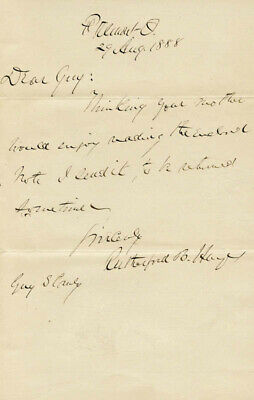 Fremont, O.
29 Aug 1888
Dear Guy:
Thinking your mother
would enjoy reading the enclosed
note I send it, to be returned
sometime.
Sincerely
Rutherford B. Hayes
Guy S